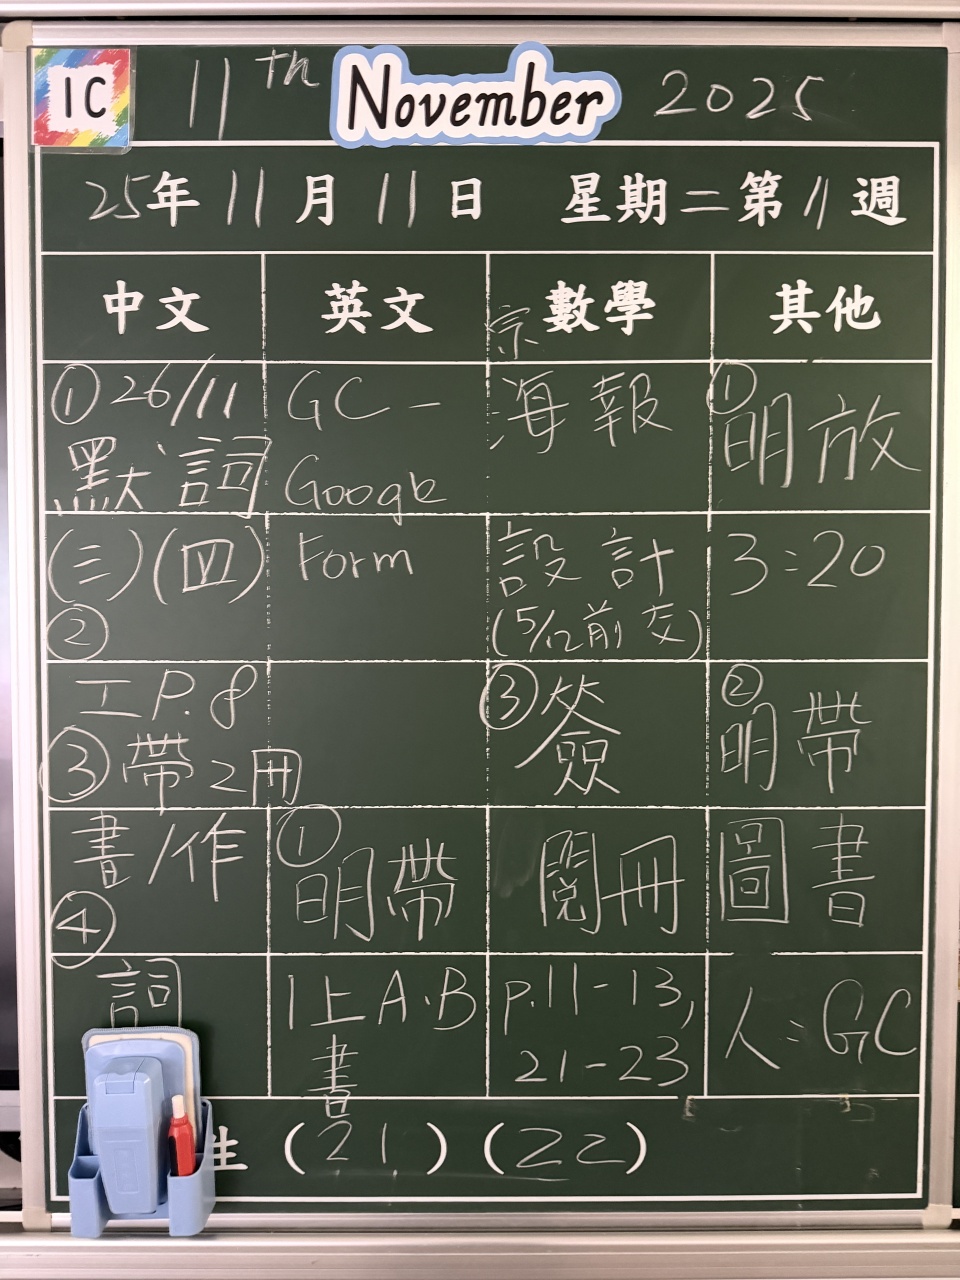 1C
11th November 2025
25年11月11日 星期二第11週
中文 英文 數學 其他
①26/11
默詞
(三)(四)
②
工P.8
③帶2冊
書/作
④
詞
GC-
Google
Form
①
明帶
1上A.B
書
宗
海報
設計
(5/12前交)
③簽
閱冊
p.11-13,
21-23
①
明放
3:20
②
明帶
圖書
人:GC
生 (21) (22)